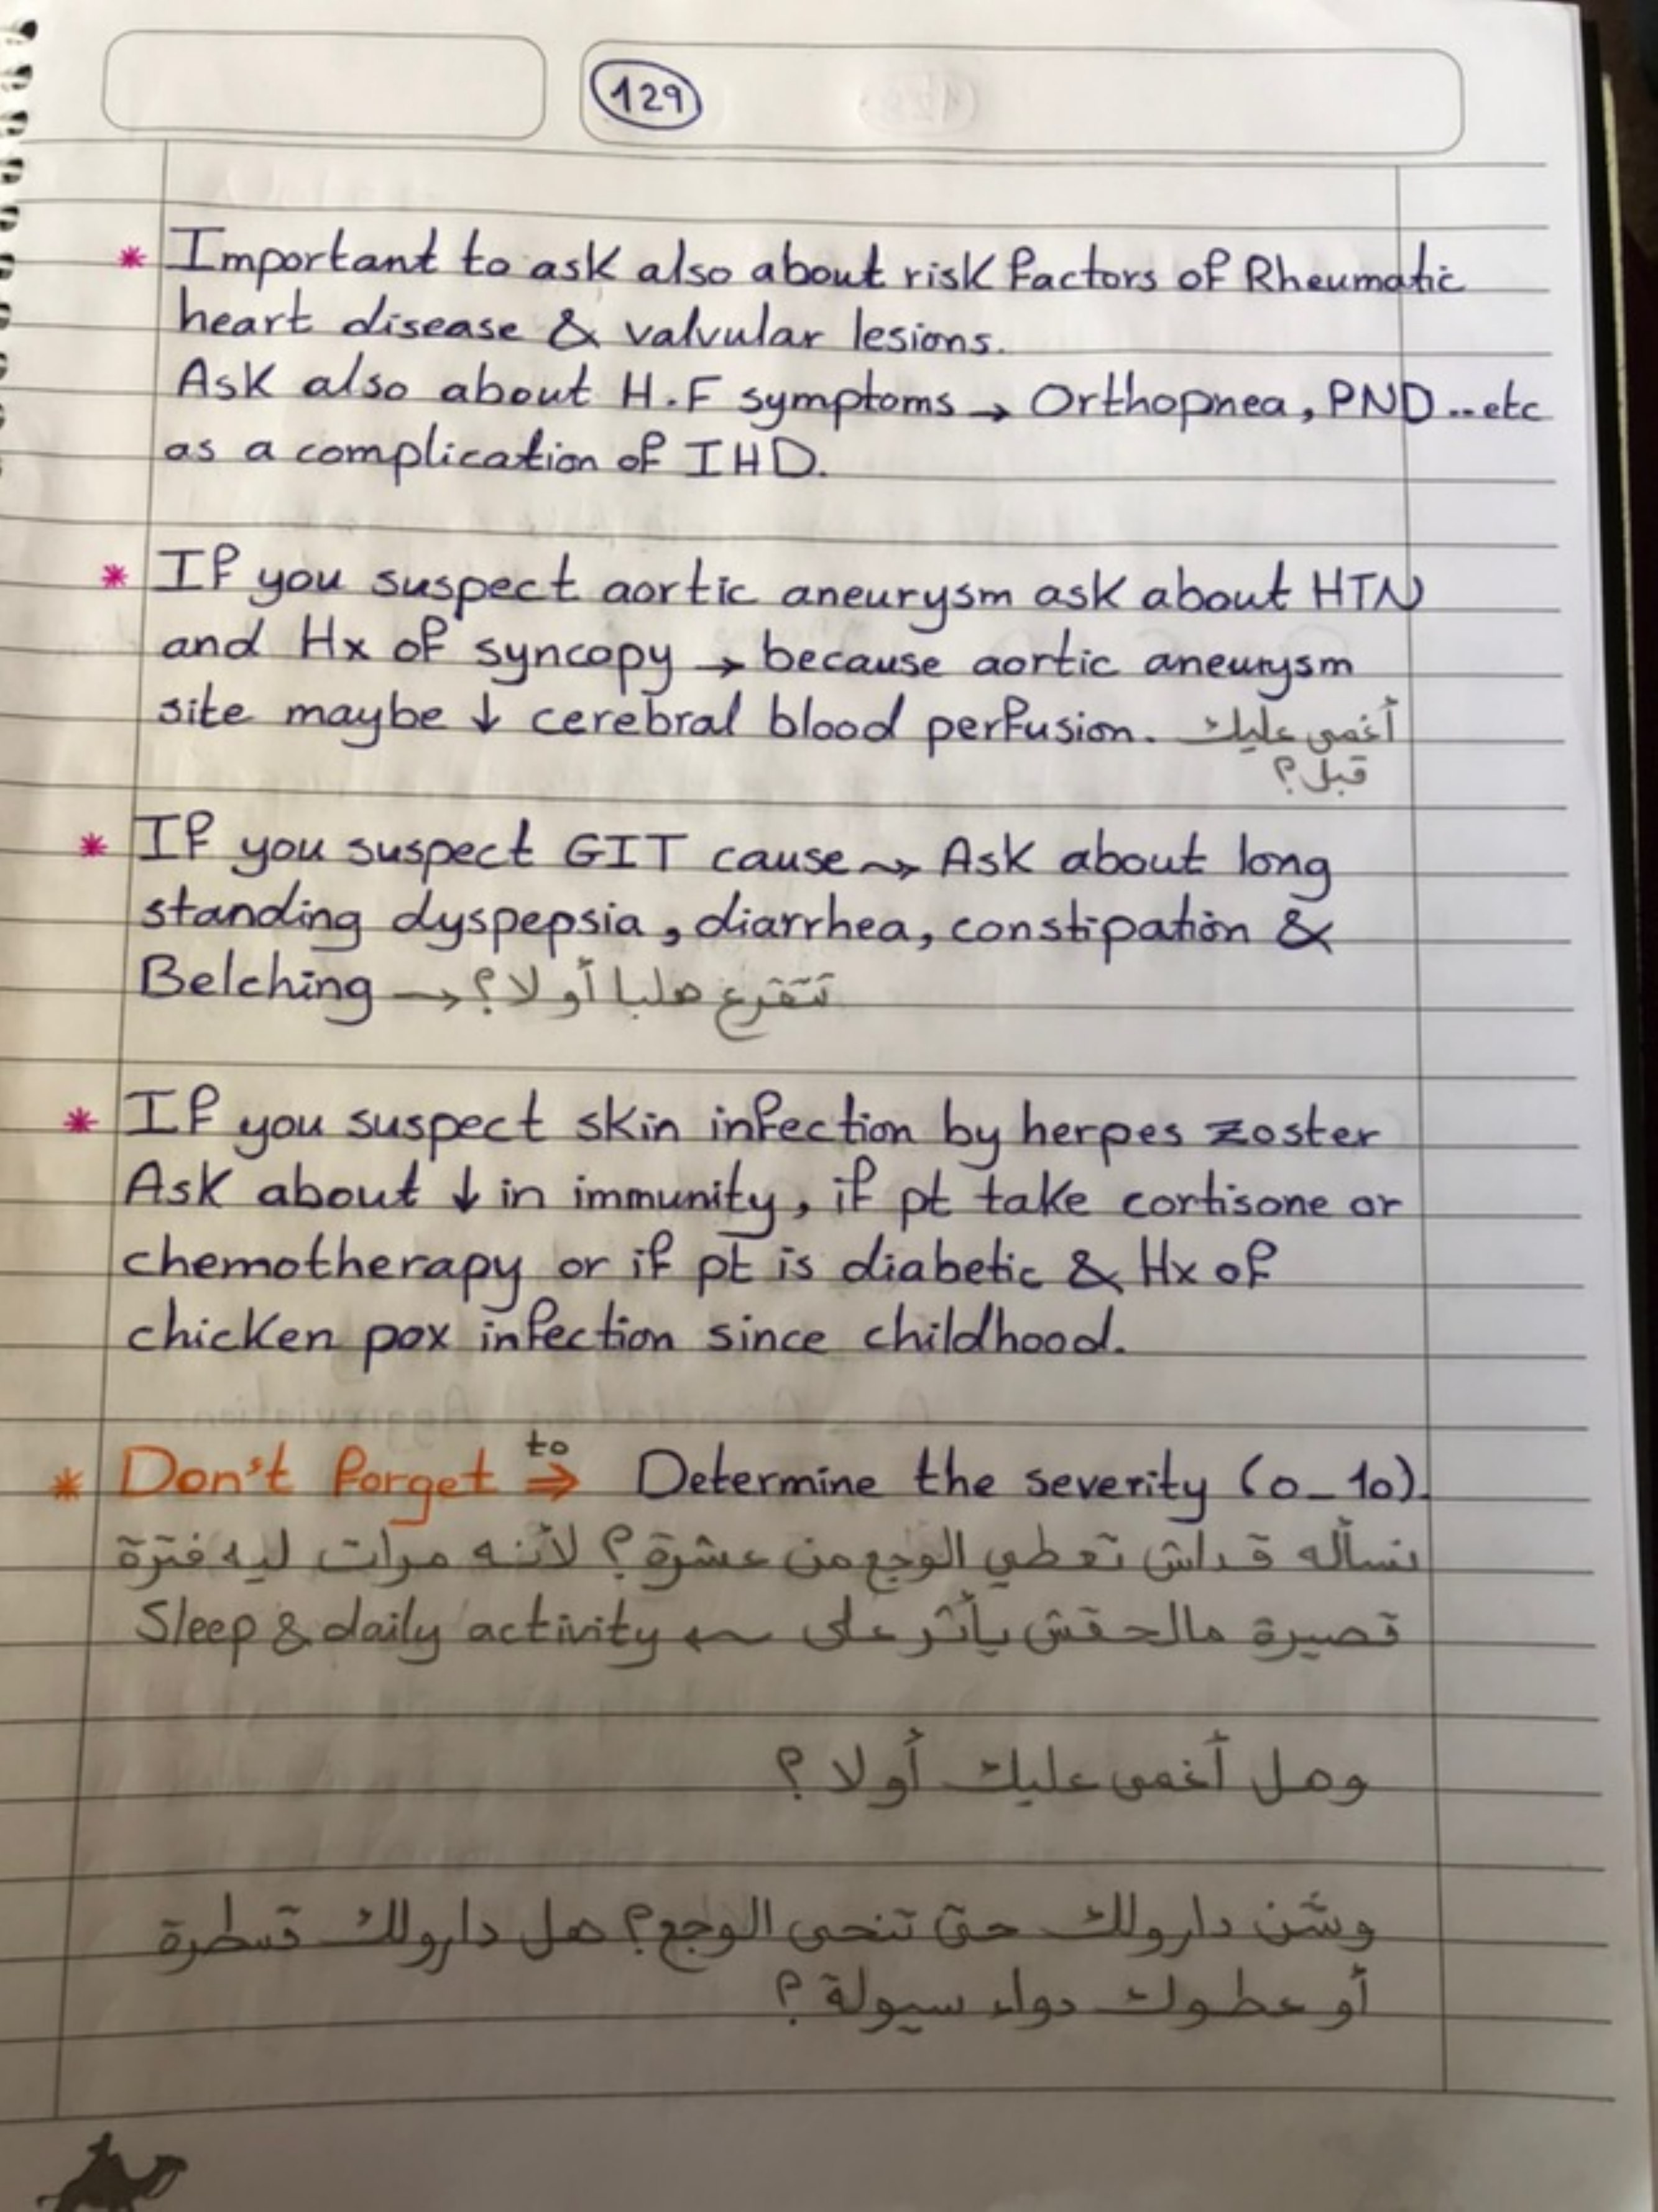 129
* Important to ask also about risk factors of Rheumatic
heart disease & valvular lesions.
Ask also about H.F symptoms → Orthopnea, PND..etc
as a complication of IHD.
* If you suspect aortic aneurysm ask about HTN
and Hx of syncopy → because aortic aneurysm
site maybe ↓ cerebral blood perfusion. أغمى عليك
قبل؟
* If you suspect GIT cause ⇝ Ask about long
standing dyspepsia, diarrhea, constipation &
Belching → تتقرع هلبا أو لا؟
* If you suspect skin infection by herpes zoster
Ask about ↓ in immunity, if pt take cortisone or
chemotherapy or if pt is diabetic & Hx of
chicken pox infection since childhood.
* Don't forget to ⇒ Determine the severity (0_10).
نسأله قداش تعطي الوجع من عشرة؟ لأنه مرات ليه فترة
قصيرة مالحقش يأثر على ⇜ Sleep & daily activity
وهل أغمى عليك أو لا؟
وشن دارولك حتى تنحى الوجع؟ هل دارولك قسطرة
أو عطوك دواء سيولة؟